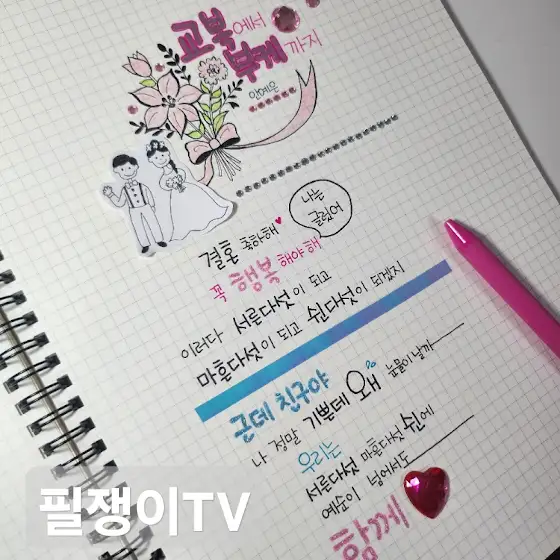 교복에서
부케까지
안예은
나는
글렀어
결혼 축하해
꼭 행복해야 해
이러다 서른다섯이 되고
마흔다섯이 되고 쉰다섯이 되겠지
근데 친구야
나 정말 기쁜데 왜 눈물이 날까
우리는
서른다섯 마흔다섯 쉰에
예순이 넘어서도
함께
필쟁이TV